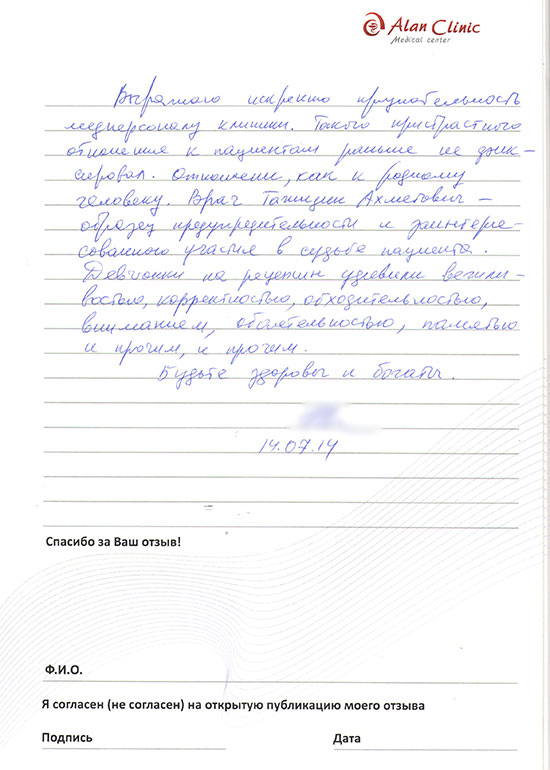 Alan Clinic
Medical center
Выражаю искренню признательность
медперсоналу клиники. Такого пристрастного
отношения к пациентам раньше не фик-
сировал. Отношение, как к родному
человеку. Врач Ахметович –
образец предупредительности и заинтере-
сованного участия в судьбе пациента.
Девчонки на рецепшн удивили вежли-
востью, корректностью, обходительностью,
вниманием, обаятельностью, памятью
и прочим, и прочим.
Будьте здоровы и богаты.
14.07.14
Спасибо за Ваш отзыв!
Ф.И.О.
Я согласен (не согласен) на открытую публикацию моего отзыва
Подпись
Дата